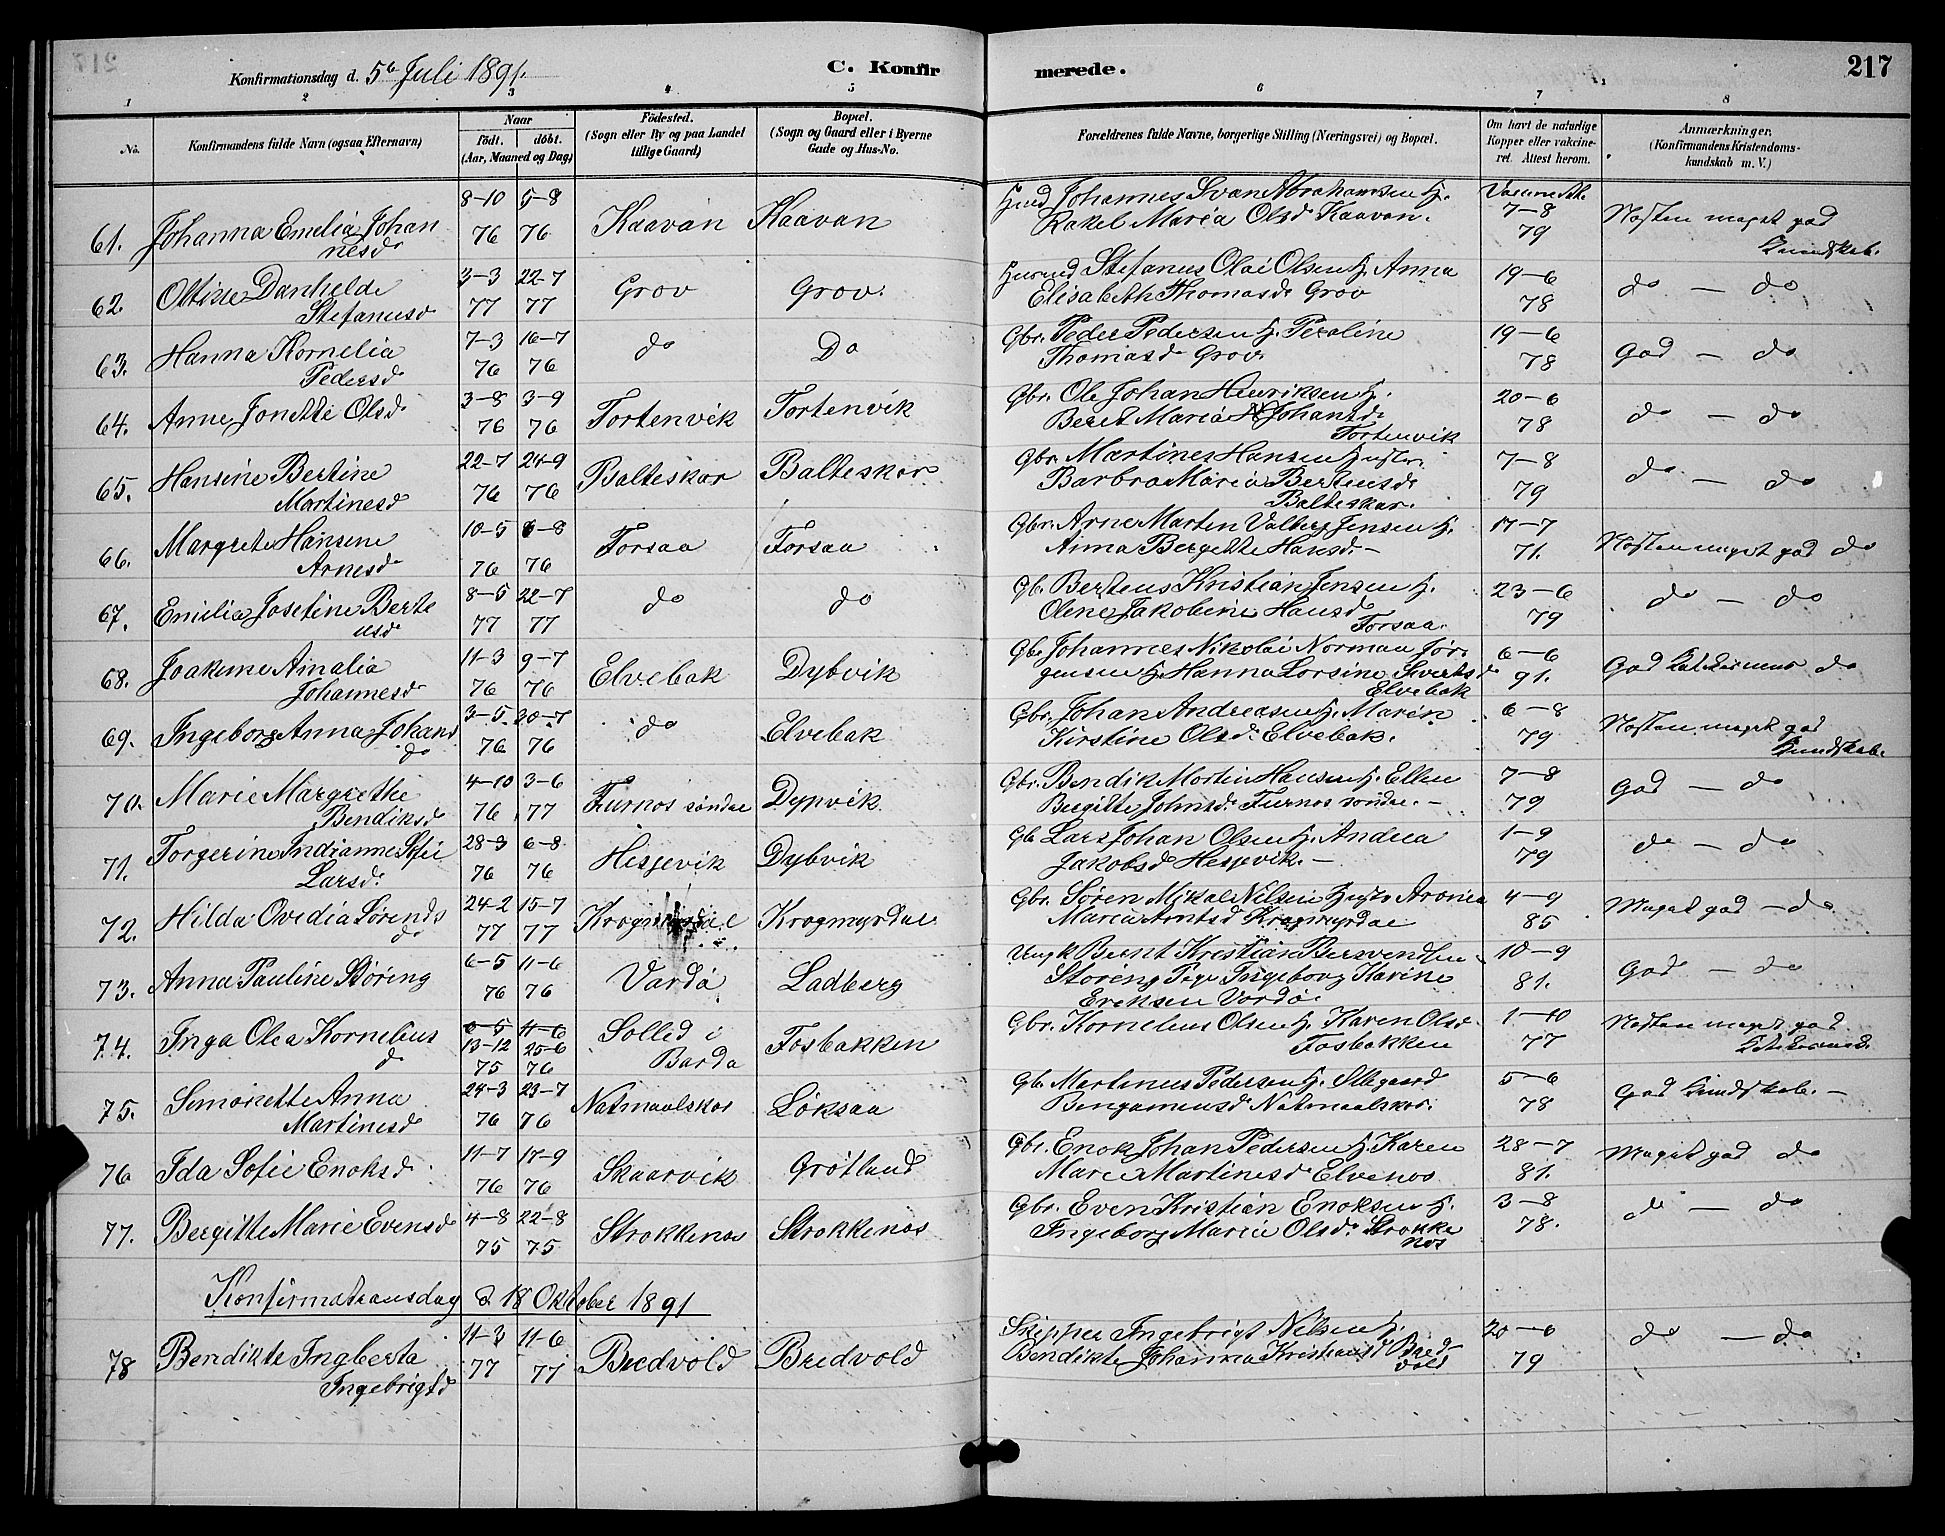 Konfirmationsdag d. 5te Juli 1891.
C. Konfir
merede.
217
1 2 3 4 5 6 7 8
No.
Konfirmandens fulde Navn (ogsaa Efternavn)
Naar
født. døbt.
(Aar, Maaned og Dag)
Fødested.
(Sogn eller By og paa Landet
tillige Gaard)
Bopæl.
(Sogn og Gaard eller i Byerne
Gade og Hus-No.
Forældrenes fulde Navne, borgerlige Stilling (Næringsvei) og Bopæl.
Om havt de naturlige
Kopper eller vakcine-
ret. Attest herom.
Anmærkninger.
(Konfirmandens Kristendoms-
kundskab m. V.)
8-10 5-8 Johannes Svan Abrahamsen H.
61. Johanna Emelia Johan 76 76 Kaavan Kaavan Rakel Maria Olsd Kaavan. 7-8 79 Nosten maget god
nesd Kundskab.
62. Oltine Danhelde 3-3 22-7 Grov Grov. Stefanus Olai Olsen H. Anna 19-6 do - do
Stefanusd 77 77 Elisabeth Thomasd Grov 78
63. Hanna Kornelia 7-3 16-7 do Do Gbr. Peder Pedersen H. Peroline 19-6 God - do
Pedersd 76 76 Thomasd Grov 78
64. Anne Jonette Olsd 3-8 3-9 Tortenvik Tortenvik Gbr. Ole Johan Henriksen H. 20-6 do - do
76 76 Beret Maria Johansd 78
Tortenvik
65. Hansine Bertine 22-7 24-9 Balteskar Balteskar Gbr. Martines Hansen Hustr. 7-8 do - do
Martinesd 76 76 Barbro Maria Berteusd 79
Balteskar.
66. Margrete Hansene 10-5 6-8 Forsaa Forsaa Gbr. Arne Marten Valberg Jensen H. 17-7 Nosten maget god do
Arnesd 76 76 Anna Bergette Hansd. - 71.
67. Emilia Josefine Berte 8-5 22-7 do do Gb. Berteus Kristian Jensen H. 23-6 do - do
usd 77 77 Olene Jakobine Hansd 79
Forsaa.
68. Joakime Amalia 11-3 9-7 Elvebak Dybvik Gbr Johannes Nikolai Norman Jør 6-6 God do
Johannesd 76 76 gensen H. Hanna Lorsine Sivertsd 91.
Elvebak
69. Ingeborg Anna Johans 3-5. 30-7 do Elvebak Gbr. Johan Andreasen H. Maren 6-8 Nosten maget god
d 76 76 Kirstine Olsd. Elvebak. 79 Kundskab.
70. Marie Margrethe 4-10 3-6 Furnos søndre Dypvik Gbr. Bendik Morten Hansen H. Ellen 7-8 God - do
Bendiksd 76 77 Bergitte Johnsd. Furnos søndre. - 79
71. Torgerine Indianne Sofie 28-3 6-8 Hesjevik Dybvik Gb Lars Johan Olsen H. Andrea 1-9 do - do
Larsd. 76 76 Jakobsd Hesjevik. - 79
72. Hilda Ovedia Sørends 24-2 15-7 Krogmyrdal Krogmyrdal Gbr. Søren Mikal Nilsen Hustr Aronea 4-9 Maget god - do
d 77 77 Maria Arntsd Krogmyrdal 85
73. Anna Pauline Støring 6-5 11-6 Vardø Ladberg Ungk Bernt Kristian Bersvendsen 10-9 God - do
76 76 Støring Pige Ingeborg Karine 81.
Erensen Vardø.
74. Inga Olea Kornelius 6-5 11-6 Solled i Fosbakken Gbr. Kornelius Olsen H. Karen Olsd. 1-10 Nosten maget god
d 13-12 25-6 Bardo Fosbakken 77
75 76
75. Simonette Anna 24-3 23-7 Natmaalskor Løksaa Gb. Martinus Pedersen H. Ellegaard 5-6 God Kundskab. -
Martinesd 76 76 Bengamensd Natmaalskor. 78
76 Ida Sofie Enoksd 11-7 17-9 Skaarvik Grøtland Gbr. Enok Johan Pedersen H. Karen 28-7 Maget god do
76 76 Marie Martinesd Elvenos 81.
77. Bergitte Marie Evensd 4-8 22-8 Strokkenos Strokkenos Gbr. Even Kristian Enoksen H. 3-8 do - do
75 75 Ingeborg Marie Olsd. Strokke 78.
nos
Konfirmationsdag d 18 Oktober 1891
78 Bendikte Ingberta 11-3 11-6 Bredvold Bredvold Skipper Ingebrigt Nilsen H. 20-6 do - do
Ingebrigtsd 77 77 Bendikte Johanna Kristiansd Bred- 79
vold